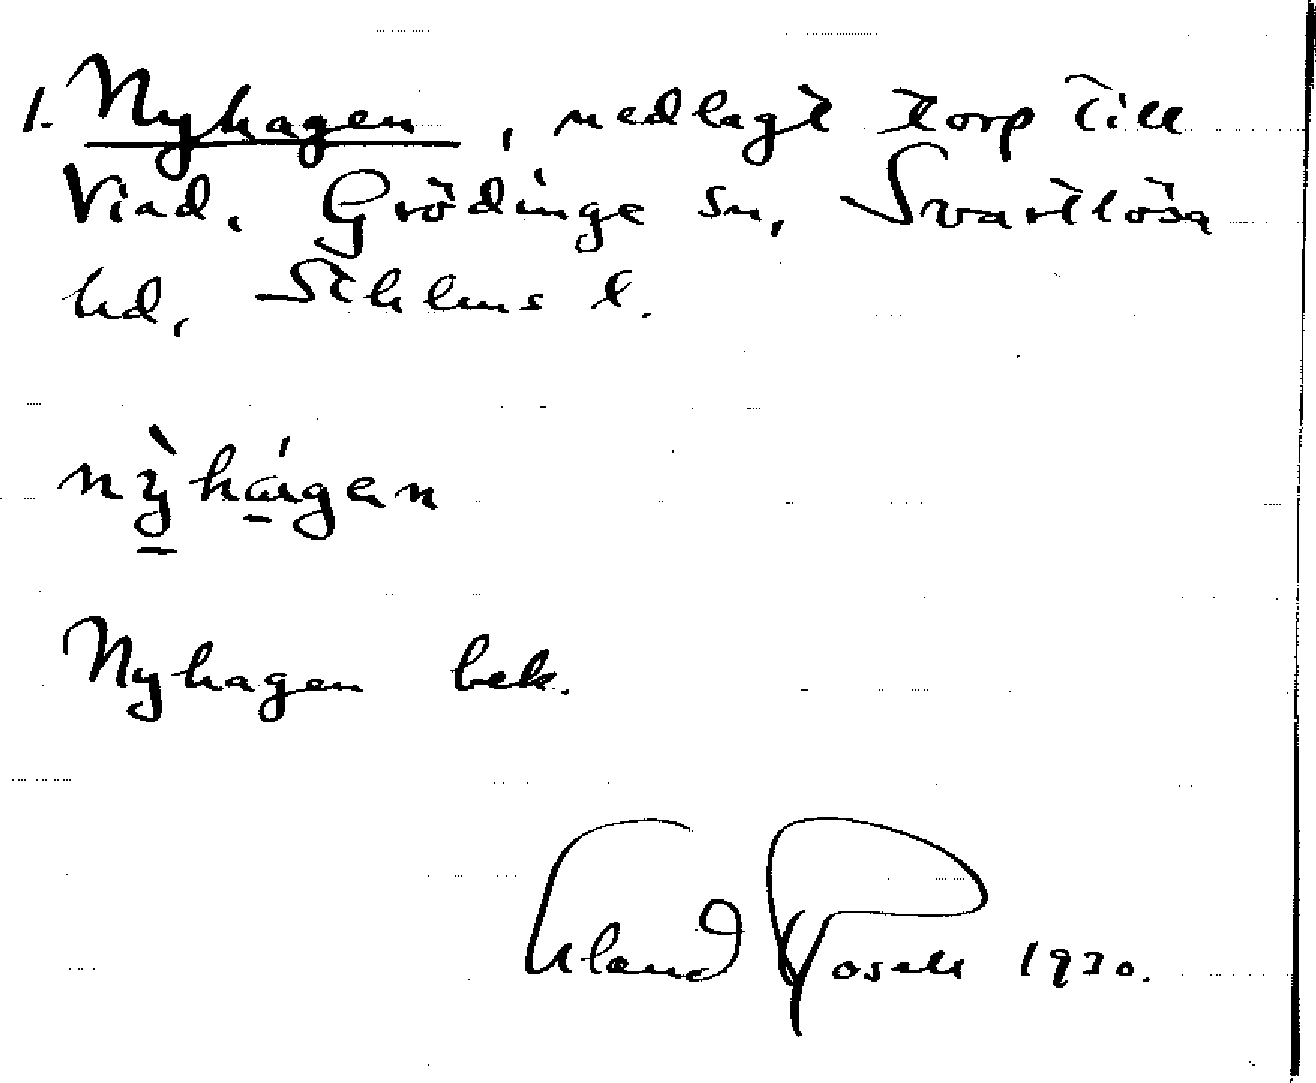 1. Nyhagen, nedlagt torp till
Viad, Grödinge sn, Svartlösa
hd, Sthlms l.
nỳhágen
Nyhagen bek.
Erland Rosell 1970.